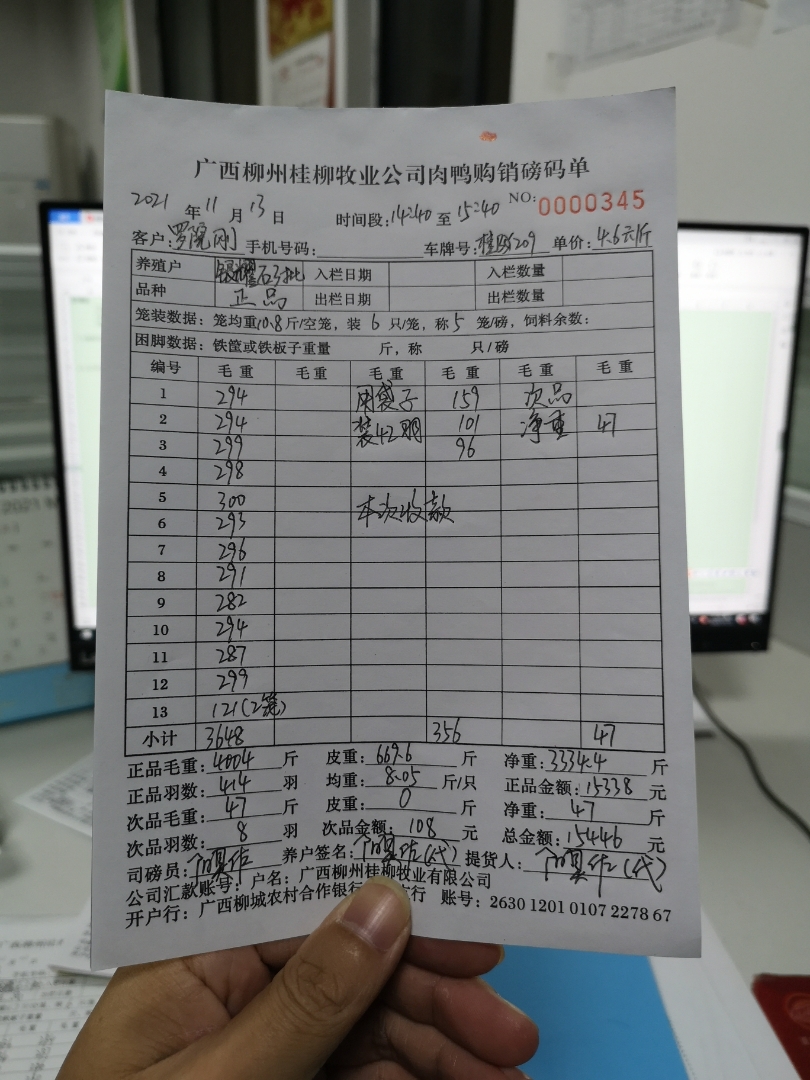 广西柳州桂柳牧业公司肉鸭购销磅码单
2021 年 11 月 13 日 时间段: 14:40 至 15:40 NO: 0000345
客户: 罗院刚 手机号码: 车牌号: 209 单价: 4.6元/斤
养殖户 入栏日期 入栏数量
品种 正品 出栏日期 出栏数量
笼装数据: 笼均重10.8斤/空笼, 装 6 只/笼, 称 5 笼/磅, 饲料余数:
困脚数据: 铁筐或铁板子重量 斤, 称 只/磅
编号 毛重 毛重 毛重 毛重 毛重 毛重
1 294 用袋子 159 次品
2 294 装42羽 101 净重 47
3 299 96
4 298
5 300 本次收款
6 293
7 296
8 291
9 282
10 294
11 287
12 299
13 121(2笼)
小计 3648 356 47
正品毛重: 4004 斤 皮重: 669.6 斤 净重: 3334.4 斤
正品羽数: 414 羽 均重: 8.05 斤/只 正品金额: 15338 元
次品毛重: 47 斤 皮重: 0 斤 净重: 47 斤
次品羽数: 8 羽 次品金额: 108 元 总金额: 15446 元
司磅员: 养户签名: (代) 提货人: (代)
公司汇款账号: 户名: 广西柳州桂柳牧业有限公司
开户行: 广西柳城农村合作银行 行 账号: 2630 1201 0107 2278 67
2021